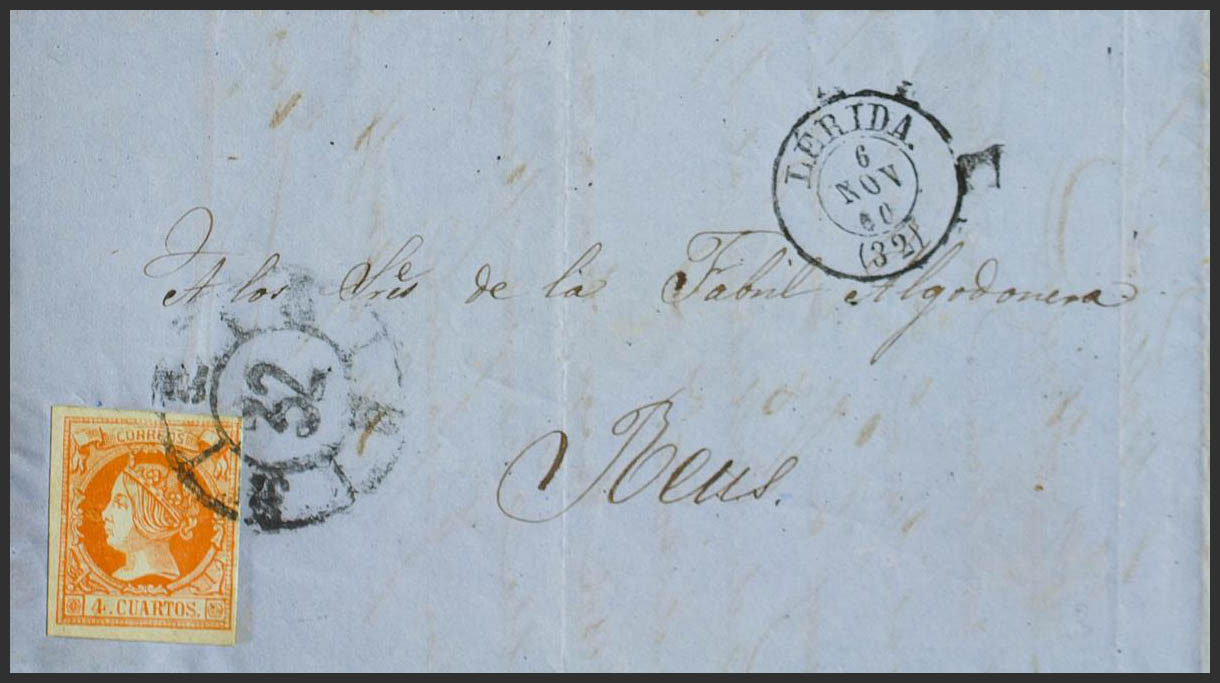 LÉRIDA.
6
NOV
60
(32)
A los Sres de la Fabril Algodonera
Reus.
32
CORREOS
4 CUARTOS.